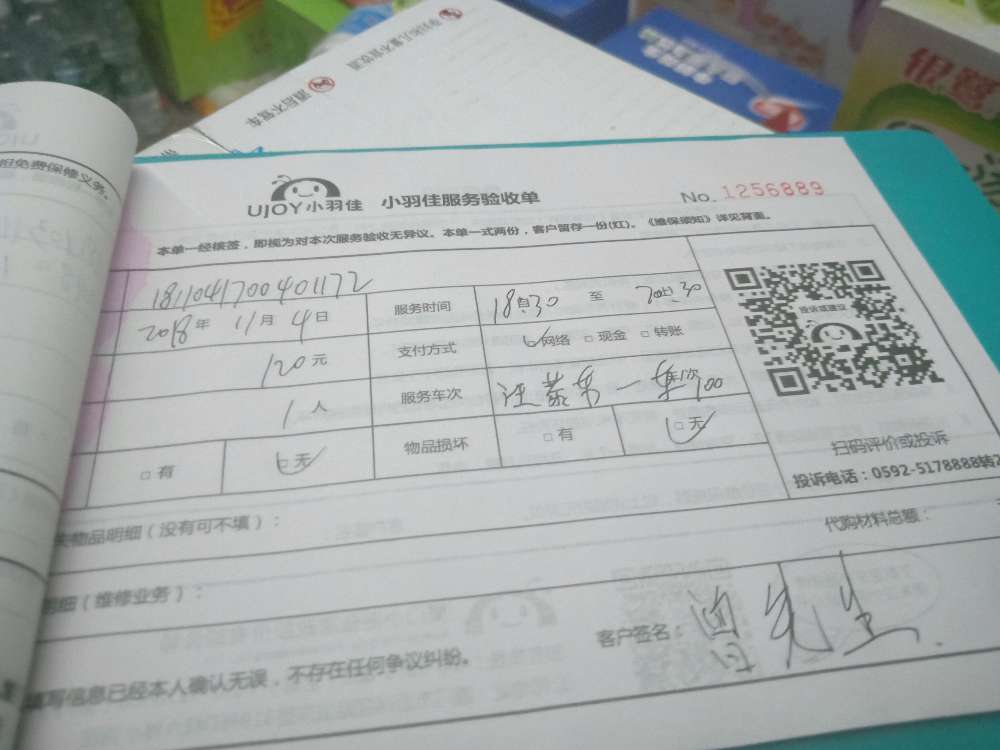 酒后不驾车
担免费保修义务。
UJOY小羽佳 小羽佳服务验收单 No. 1256889
本单一经核签，即视为对本次服务验收无异议。本单一式两份，客户留存一份(红)。《维保须知》详见背面。
1811041700401172 服务时间 18:30 至 20:30
2018年 11月 4日 支付方式 □网络 □现金 □转账
120元
1人 服务车次
□有 □无 物品损坏 □有 □无
投诉或建议
扫码评价或投诉
投诉电话：0592-5178888转2
物品明细（没有可不填）： 代购材料总额：
明细（维修业务）：
客户签名：曾先生
填写信息已经本人确认无误，不存在任何争议纠纷。
银鹭